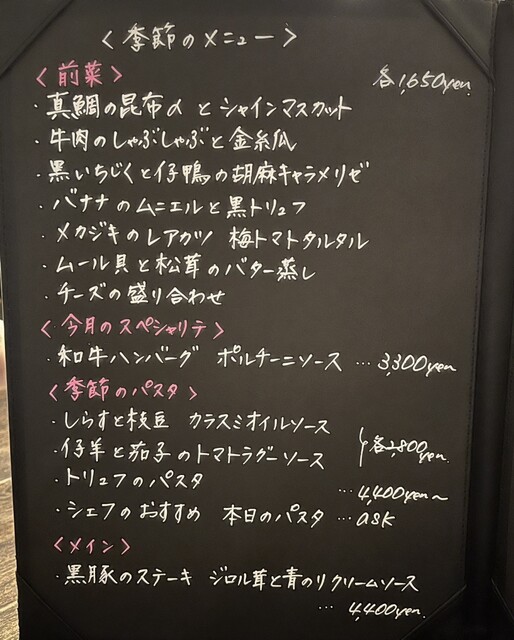 〈季節のメニュー〉
〈前菜〉 各1,650yen.
・真鯛の昆布〆とシャインマスカット
・牛肉のしゃぶしゃぶと金糸瓜
・黒いちじくと仔鴨の胡麻キャラメリゼ
・バナナのムニエルと黒トリュフ
・メカジキのレアカツ 梅トマトタルタル
・ムール貝と松茸のバター蒸し
・チーズの盛り合わせ
〈今月のスペシャリテ〉
・和牛ハンバーグ ポルチーニソース … 3,300yen
〈季節のパスタ〉
・しらすと枝豆 カラスミオイルソース
・仔羊と茄子のトマトラグーソース 各2,800yen.
・トリュフのパスタ … 4,400yen〜
・シェフのおすすめ 本日のパスタ … ask
〈メイン〉
・黒豚のステーキ ジロル茸と青のりクリームソース
… 4,400yen.